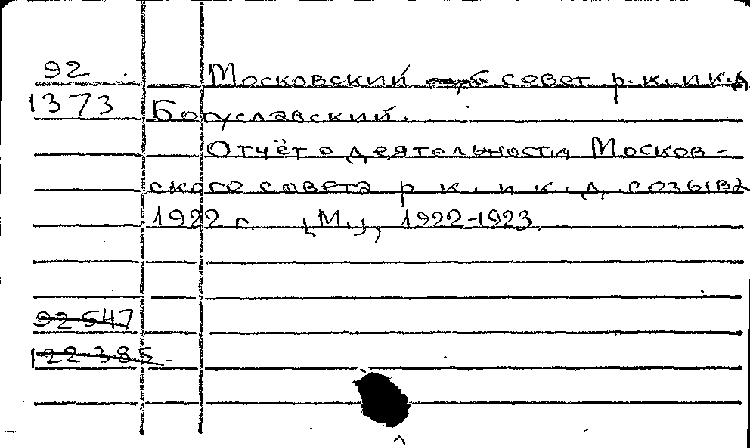 92 Московский совет р. к. и к. д
1373 Богуславский.
Отчёт о деятельности Москов-
ского совета р. к. и к. д. созыва
1922 г. [М.], 1922-1923.
92547
122385